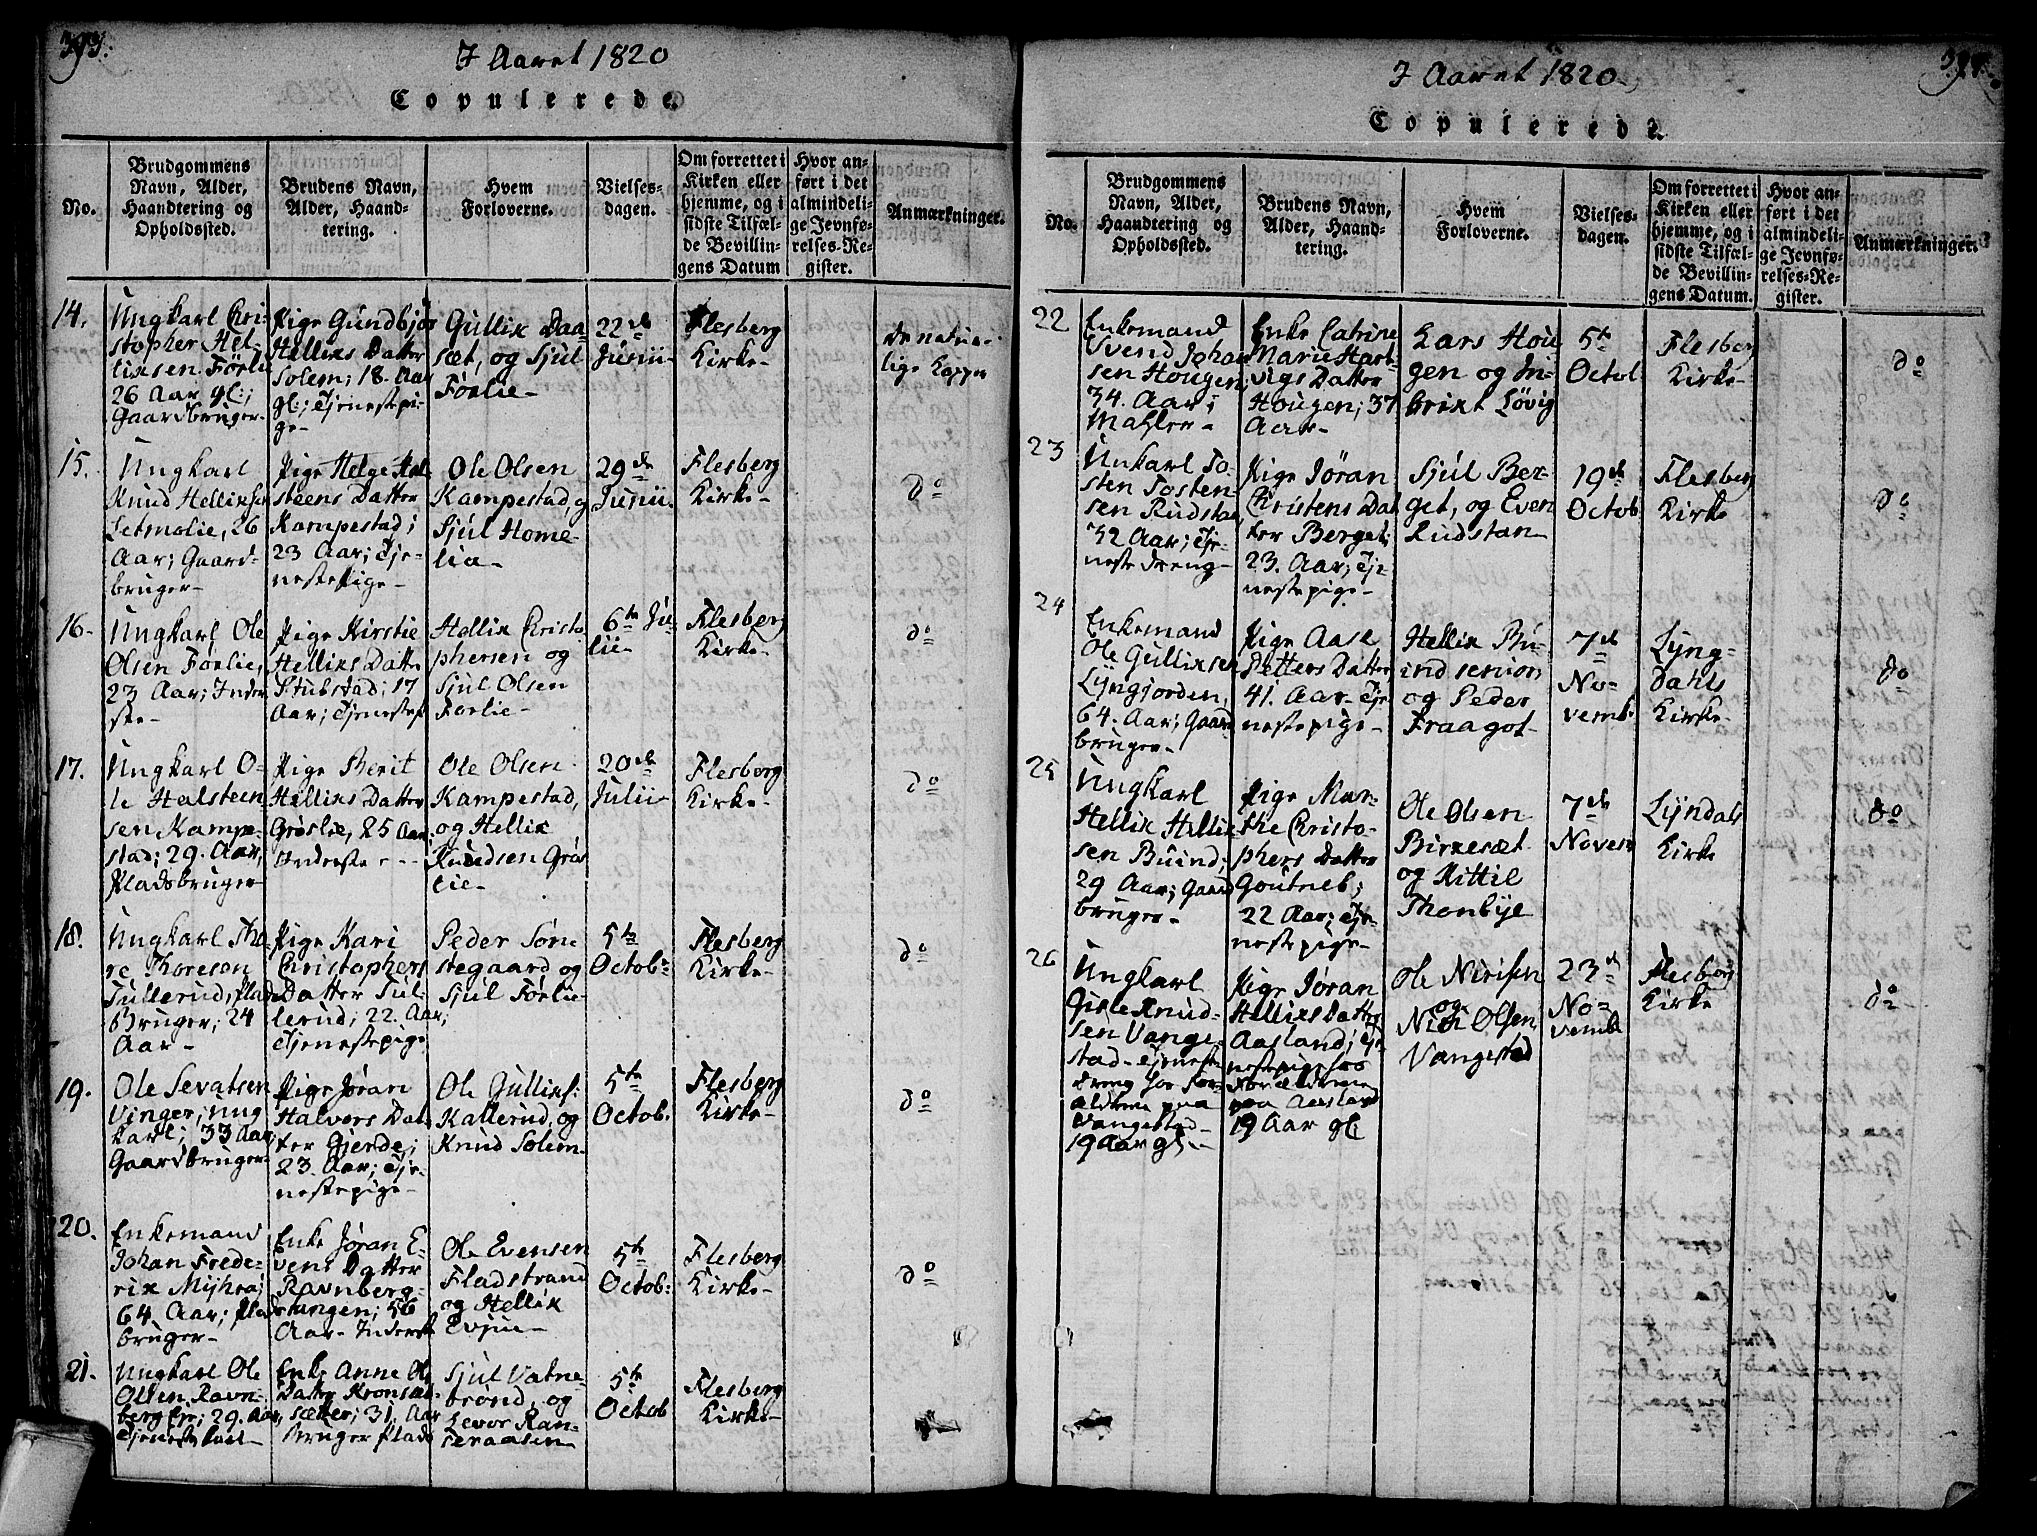 393.
I Aaret 1820
Copulerede.
No.
Brudgommens
Navn, Alder,
Haandtering og
Opholdssted.
Brudens Navn,
Alder, Haand-
tering.
Hvem
Forloverne.
Vielses-
dagen.
Om forrettet i
Kirken eller
hjemme, og i
sidste Tilfæl-
de Bevillin-
gens Datum
Hvor an-
ført i det
almindeli-
ge Jevnfø-
relses-Re-
gister.
Anmærkninger.
14.
Ungkarl Chri-
stopher Hel-
liksen Förlie
26 Aar gl.;
Gaardbruger-
Pige Gundbjör
Helliks Datter
Solem; 18. Aar
gl.; Tjenestepi-
ge-
Gullik Daa
sæt, og Sjul
Förlie-
22de
Junii-
Flesberg
Kirke-
De natur-
lige Kopper
15.
Ungkarl
Knud Helliksen
Letmolie, 26
Aar; Gaard-
bruger-
Pige Helge Hal
steens Datter
Kampestad;
23 Aar; Tje-
nestepige-
Ole Olsen
Kampestad, og
Sjul Home-
lia-
29de
Junii-
Flesberg
Kirke-
do
16-
Ungkarl Ole
Olsen Förlie,
23 Aar; Inder
ste-
Pige Kirstie
Helliks Datter
Stubstad; 17
Aar; Tjenestep
Hellik Christo
phersen og
Sjul Olsen
Förlie-
6te Ju-
lii-
Flesberg
Kirke-
do
17.
Ungkarl O-
le Halsteen
sen Kampe-
stad; 29. Aar,
Pladsbruger-
Pige Berit
Helliks Datter
Gröslie, 25 Aar;
Inderste -
Ole Olsen
Kampestad,
og Hellik
Knudsen Grös
lie-
20de
Julii-
Flesberg
Kirke-
do
18.
Ungkarl Tho-
re Thoresen
Tullerud, Plads
Bruger; 24
Aar-
Pige Kari
Christophers
Datter Tul-
lerud; 22. Aar;
Tjenestepige
Peder Sön-
stegaard og
Sjul Förlie-
5te
Octob:
Flesberg
Kirke-
do
19.
Ole Sevatsen
Vinger; Ung
karl; 33 Aar;
Gaardbruger-
Pige Jöran
Halvors Dat
ter Gjerde;
23. Aar; Tje-
nestepige-
Ole Gulliks:
Kallerud, og
Knud Solem-
5te
Octob:
Flesberg
Kirke-
do
20.
Enkemand
Johan Frede-
rik Mÿhra;
64 Aar; Plads
bruger-
Enke Jöran E-
vens Datter
Ravnberg-
stangen; 56
Aar- Inderste
Ole Evensen
Fladstrand
og Hellik
Evju-
5te
Octob:
Flesberg
Kirke-
do
21.
Ungkarl Ole
Olsen Ravn-
berg 29. Aar,
Enke Anne Ols
Datter
sætter; 31. Aar
Bruger Plads
Sjul Vatne-
brönd, og
Levor Ran-
5te
Octob
Flesberg
Kirke-
394.
I Aaret 1820
Copulerede.
No.
Brudgommens
Navn, Alder,
Haandtering og
Opholdssted.
Brudens Navn,
Alder, Haand-
tering.
Hvem
Forloverne.
Vielses-
dagen.
Om forrettet i
Kirken eller
hjemme, og i
sidste Tilfæl-
de Bevillin-
gens Datum.
Hvor an-
ført i det
almindeli-
ge Jevnfø-
relses-Re-
gister.
Anmærkninger.
22
Enkemand
Svend Johan
sen Hougen;
34. Aar;
Mahler-
Enke Catrine
Marie Hart-
vigs Datter
Hougen; 37
Aar-
Lars Hou
gen og In-
brikt Lövig
5te
Octob
Flesberg
Kirke-
do
23
Unkarl To-
sten Tosten-
sen Rudstan,
32 Aar; Tje-
nestedreng-
Pige Jöran
Christens Dat
ter Berget;
23. Aar; Tje-
nestepige-
Sjul Ber-
get, og Even
Rudstan
19de
Octob
Flesberg
Kirke
do
24
Enkemand
Ole Gulliksen
Lÿngjorden,
64. Aar; Gaard
bruger-
Pige Aase
Petters Datter,
41. Aar- Tje-
nestepige-
Hellik Bu-
ind senior
og Peder
Fraagot-
7de
No-
vemb.
Lÿng-
dahls
Kirke-
do
25
Ungkarl
Hellik Hellik
sen Buind;
29 Aar; Gaard
bruger-
Pige Mar-
the Christo-
phers Datter
Goutneb;
22 Aar; Tje-
nestepige-
Ole Olsen
Birkesæt
og Kittil
Thonbÿe
7de
Novem
Lÿndals
Kirke
do
26
Ungkarl
Gisle Knud-
sen Vange-
stad- Tjeneste
dreng hos For-
ældrene paa
Vangestad-
19 Aar gl.-
Pige Jöran
Helliks Datter
Aasland; Tje
nestepige hos
Forældrene
paa Aasland
19 Aar gl
Ole Nirisen
og
Niri Olsen
Vangestad
23de
No-
vemb
Flesberg
Kirke
do